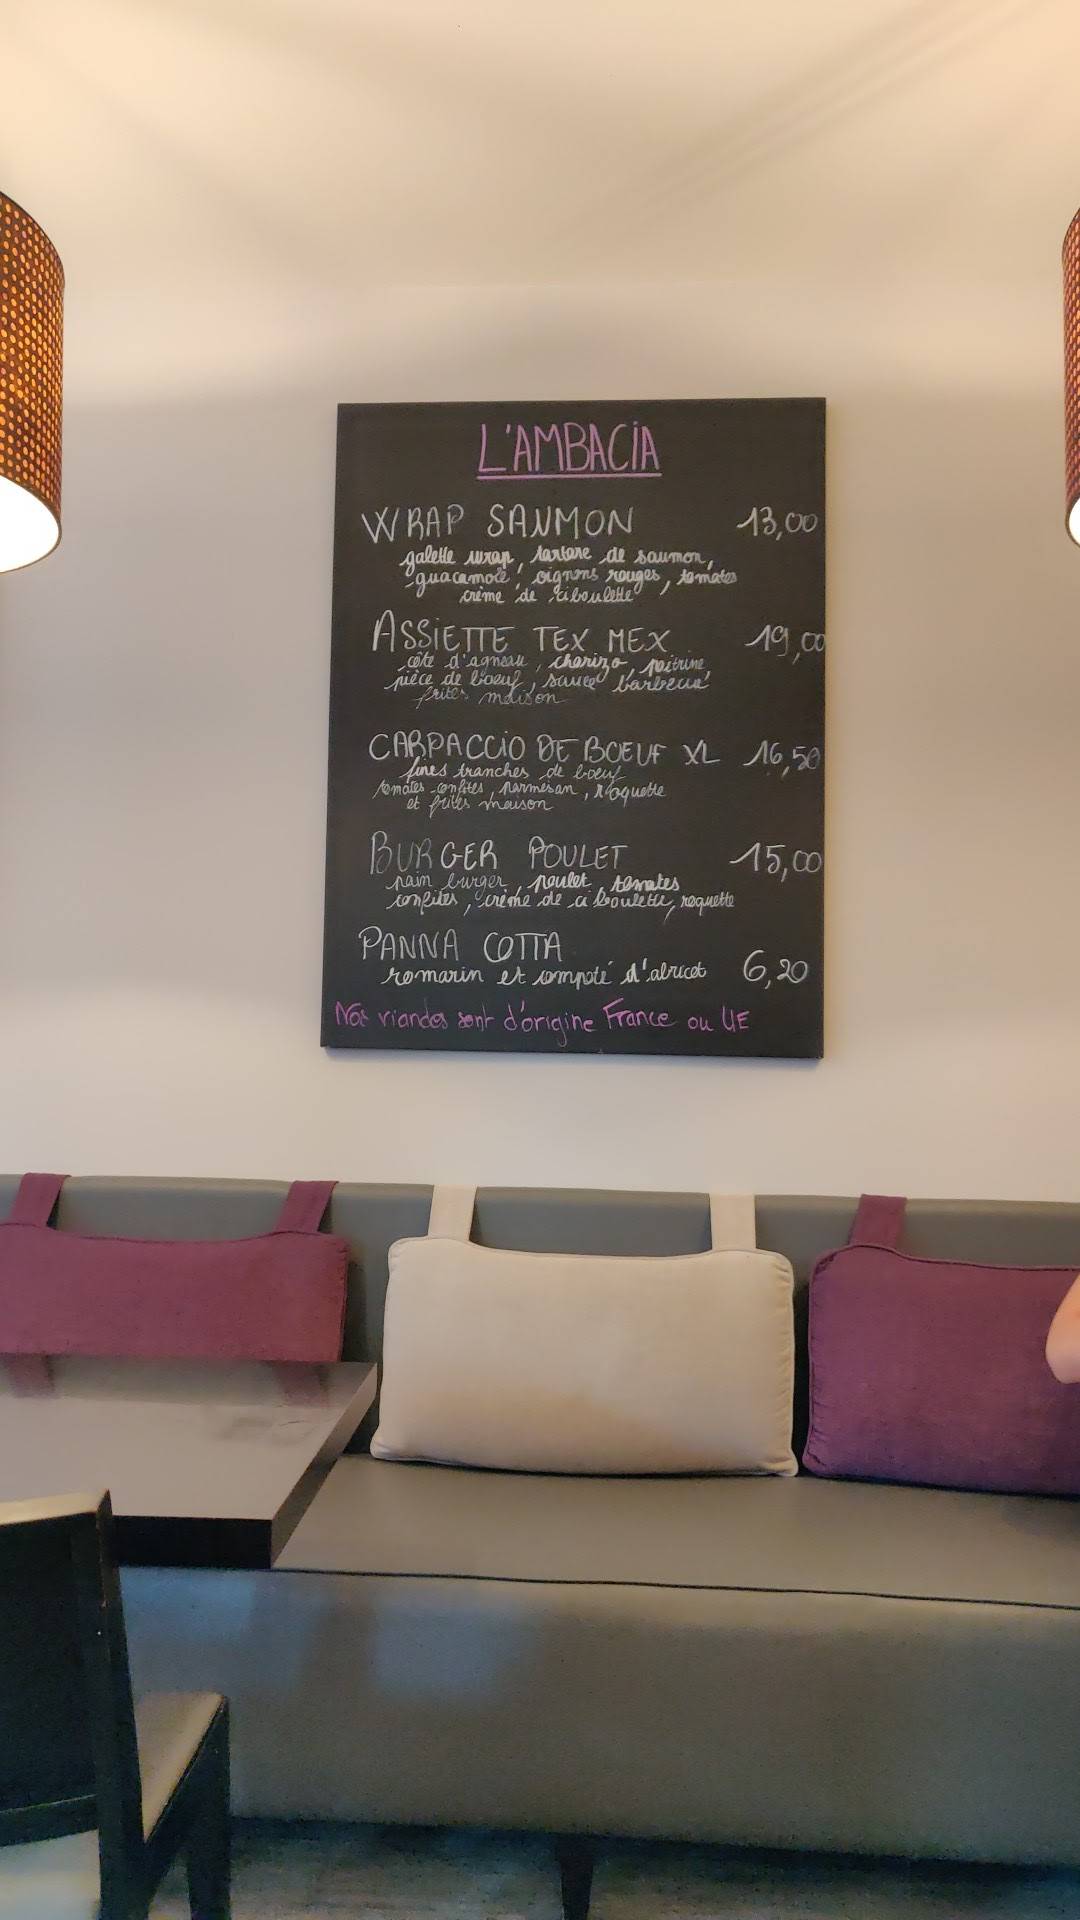 L'AMBACIA
WRAP SAUMON 13,00
galette wrap, tartare de saumon,
guacamole, oignons rouges, tomates
crème de ciboulette
ASSIETTE TEX MEX 19,00
côte d'agneau, chorizo, poitrine
pièce de boeuf, sauce barbecue
frites maison
CARPACCIO DE BOEUF XL 16,50
fines tranches de boeuf
tomates confites, parmesan, roquette
et frites maison
BURGER POULET 15,00
pain burger, poulet, tomates
confites, crème de ciboulette, roquette
PANNA COTTA
romarin et compoté d'abricot 6,20
Nos viandes sont d'origine France ou UE